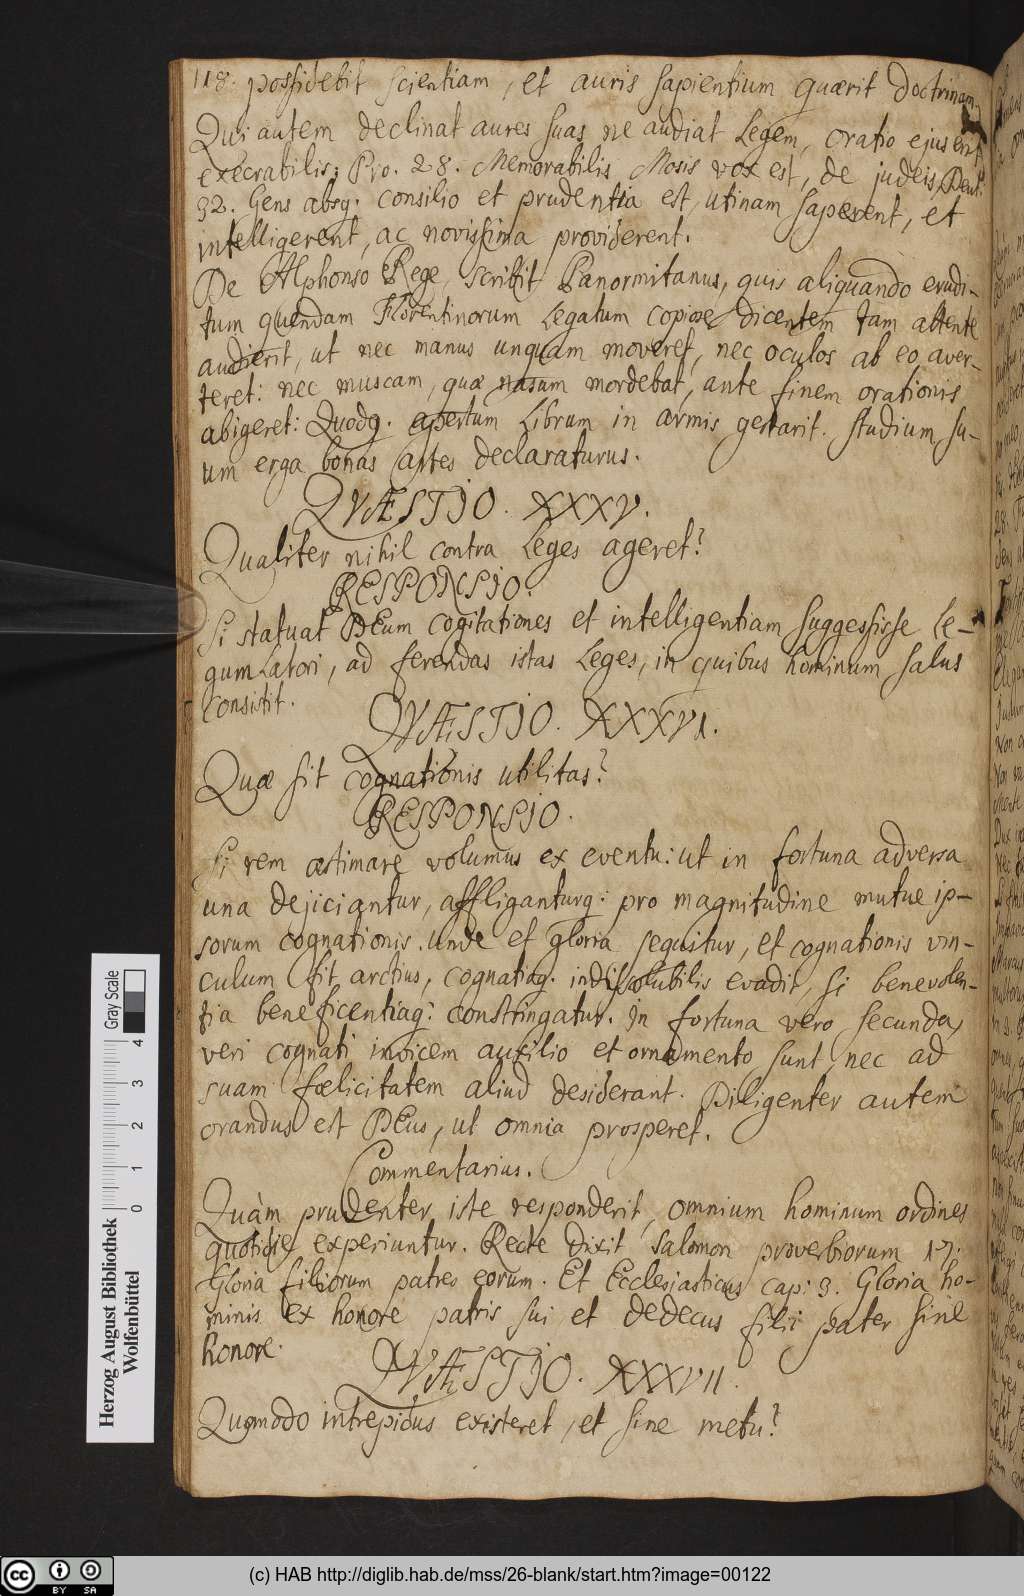 118. possidebit scientiam, et auris sapientium quærit doctrinam,
Qui autem declinat aures suas ne audiat Legem, oratio ejus erit
execrabilis: Pro. 28. Memorabilis Mosis vox est, de judeis, Deut.
32. Gens absq. consilio et prudentia est, utinam saperent, et
intelligerent, ac novissima providerent.
De Alphonso Rege scribit Panormitanus, quis aliquando erudi-
tum quendam Florentinorum Legatum copiose dicentem tam attente
audierit, ut nec manus unquam moveret, nec oculos ab eo aver-
teret: nec muscam, quæ nasum mordebat, ante finem orationis
abigeret: Quodq. apertum Librum in armis gestarit. studium su-
um erga bonas artes declaraturus.
QVÆSTIO. XXXV.
Qualiter nihil contra Leges ageret?
RESPONSIO.
Si statuat DEum cogitationes et intelligentiam suggessisse Le-
gumLatori, ad ferendas istas Leges, in quibus hominum salus
consistit.
QVÆSTIO. XXXVI.
Quæ sit cognationis utilitas?
RESPONSIO.
Si rem æstimare volumus ex eventu: ut in fortuna adversa
una dejiciantur, affliganturq: pro magnitudine mutuæ ip-
sorum cognationis. unde et gloria sequitur, et cognationis vin-
culum fit arctius, cognatioq. indissolubilis evadit, si benevolen-
tia beneficentiaq: constringatur. In fortuna vero secunda,
veri cognati invicem auxilio et ornamento sunt, nec ad
suam fœlicitatem aliud desiderant. Diligenter autem
orandus est DEus, ut omnia prosperet.
Commentarius.
Quàm prudenter iste responderit, omnium hominum ordines
quotidie experiuntur. Recte dixit Salomon proverbiorum 17:
Gloria filiorum patres eorum. Et Ecclesiasticus cap: 3. Gloria ho-
minis ex honore patris sui et dedecus filii pater sine
honore.
QVÆSTIO. XXXVII.
Quomodo intrepidus existeret, et sine metu?
Herzog August Bibliothek
Wolfenbüttel
0 1 2 3 4
Gray Scale
cc BY SA
(c) HAB http://diglib.hab.de/mss/26-blank/start.htm?image=00122